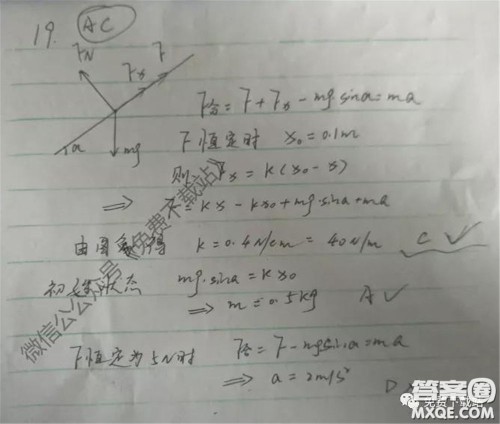 19. AC
F_N F_弹 F
α mg
F合 = F + F弹 - mg·sinα = ma
F恒定时 x₀ = 0.1m
则 F弹 = k(x₀ - x)
⇒ F = kx - kx₀ + mg·sinα + ma
k = 0.4N/cm = 40N/m C ✓
初 状态 mg·sinα = kx₀
⇒ m = 0.5kg A ✓
F恒定为5N时 F合 = F - mgsinα = ma
⇒ a = 2m/s² D
微信公众号《免费下载站》
免费下载站
答案圈
MXQE.COM